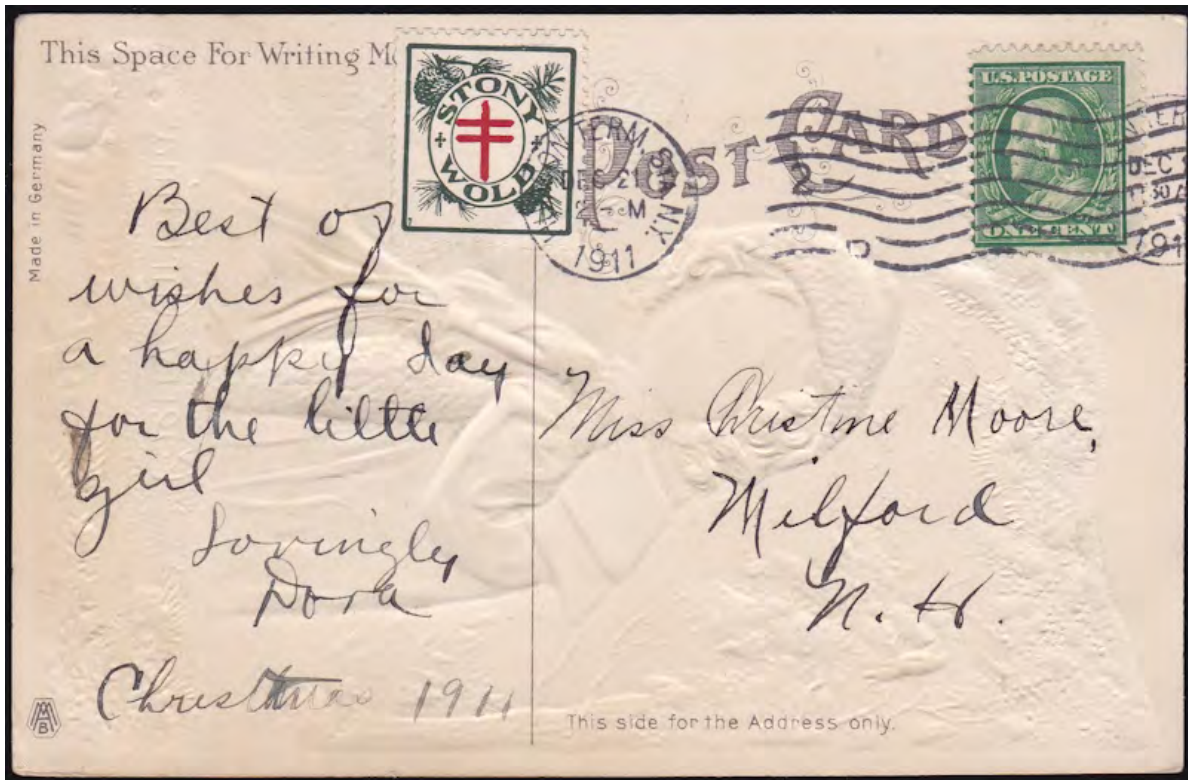 This Space For Writing
Made in Germany
STONY
WOLD
POST CARD
U.S. POSTAGE
ONE CENT
TERM. STA. N.Y.
DEC 2
M
1911
2
D
DEC
30 A
191
Best of
wishes for
a happy day
for the little
girl
Lovingly
Dora
Christmas 1911
Miss Christine Moore,
Milford
N. H.
MAB
This side for the Address only.